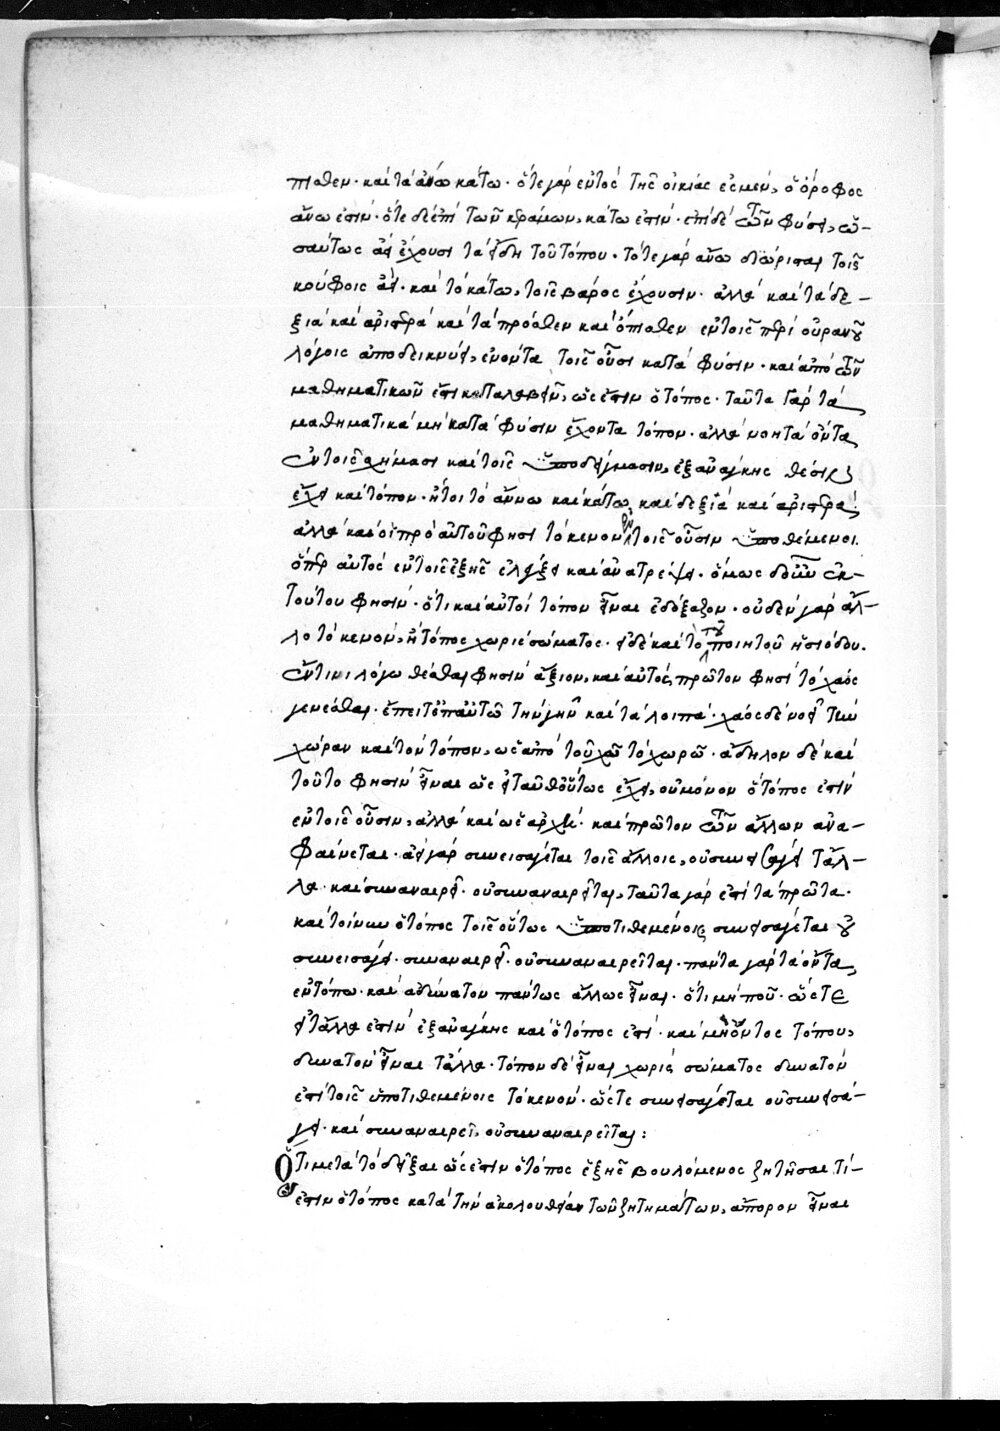 πισθεν· καὶ τὰ ἄνω κάτω· ὅτε γὰρ ἐντὸς τῆς οἰκίας ἐσμὲν, ὁ ὄροφος
ἄνω ἐστίν· ὅτε δὲ ἐπὶ τῶν κεράμων, κάτω ἐστίν· ἐπὶ δὲ τῶν φύσει, ὡ-
σαύτως ἀεὶ ἔχουσι τὰ εἴδη τοῦ τόπου· τό τε γὰρ ἄνω διώρισται τοῖς
κούφοις ἀεί· καὶ τὸ κάτω, τοῖς βάρος ἔχουσιν· ἀλλὰ καὶ τὰ δε-
ξιὰ καὶ ἀριστερὰ καὶ τὰ πρόσθεν καὶ ὄπισθεν ἐν τοῖς περὶ οὐρανοῦ
λόγοις ἀποδείκνυσι, ἐνόντα τοῖς οὖσι κατὰ φύσιν· καὶ ἀπὸ τῶν
μαθηματικῶν ἔστι καταλαβεῖν, ὡς ἔστιν ὁ τόπος· ταῦτα γὰρ τὰ
μαθηματικὰ μὴ κατὰ φύσιν ἔχοντα τόπον· ἀλλὰ νοητὰ ὄντα,
ἐν τοῖς σχήμασι καὶ τοῖς ὑποδείγμασιν, ἐξανάγκης θέσιν
ἔχει καὶ τόπον· ἤτοι τὸ ἄνω καὶ κάτω, καὶ δεξιὰ καὶ ἀριστερά·
ἀλλὰ καὶ οἱ πρὸ αὐτοῦ φησι τὸ κενὸν ἐν τοῖς οὖσιν ὑποθέμενοι·
ὅπερ αὐτὸς ἐν τοῖς ἑξῆς ἐλέγξει καὶ ἀνατρέψει· ὅμως δ οὖν ἐκ
τούτου φησὶν· ὅτι καὶ αὐτοὶ τόπον εἶναι ἐδόξαζον· οὐδὲν γὰρ ἄλ-
λο τὸ κενὸν, ἢ τόπος χωρὶς σώματος· εἰ δὲ καὶ τὸ τοῦ ποιητοῦ ἡσιόδου·
ὧτινι λόγω θέσθαι φησὶν ἄξιον, καὶ αὐτὸς πρῶτον φησὶ τὸ χάος
γενέσθαι· ἔπειτ ἐπ αὐτῶ τὴν γῆν καὶ τὰ λοιπά· χάος δὲ νοεῖ τὴν
χώραν καὶ τὸν τόπον, ὡς ἀπὸ τοῦ χῶ τὸ χωρῶ· ἄδηλον δὲ καὶ
τοῦτο φησὶν εἶναι ὡς εἰ ταῦθ οὕτως ἔχει, οὐ μόνον ὁ τόπος ἐστὶν
ἐν τοῖς οὖσιν, ἀλλὰ καὶ ὡς ἀρχὴ· καὶ πρῶτον τῶν ἄλλων ἀνα-
φαίνεται· ἀεὶ γὰρ συνεισάγεται τοῖς ἄλλοις, οὐ συνεισάγει τἄλ-
λα· καὶ συναναιρεῖ· οὐ συναναιρεῖται, ταῦτα γὰρ ἐπὶ τὰ πρῶτα·
καὶ τοίνυν ὁ τόπος τοῖς οὕτως ὑποτιθεμένοις συνεισάγεται οὐ
συνεισάγει· συναναιρεῖ· οὐ συναναιρεῖται· πάντα γὰρ τὰ ὄντα,
ἐν τόπω· καὶ ἀδύνατον πάντως ἄλλως εἶναι· ὅτι μή που· ὥστε
εἰ τἄλλα ἐστὶν ἐξανάγκης καὶ ὁ τόπος ἐστί· καὶ μὴ ὄντος τόπου,
δυνατὸν εἶναι τἄλλα· τόπον δὲ εἶναι χωρὶς σώματος δυνατὸν
ἐστὶ τοῖς ὑποτιθεμένοις τὸ κενόν· ὥστε συνεισάγεται οὐ συνεισά-
γει· καὶ συναναιρεῖ, οὐ συναναιρεῖται:
Ὅτι μετὰ τὸ δεῖξαι ὡς ἔστιν ὁ τόπος ἑξῆς βουλόμενος ζητῆσαι τί
ἐστιν ὁ τόπος κατὰ τὴν ἀκολουθίαν τῶν ζητημάτων, ἄπορον εἶναι